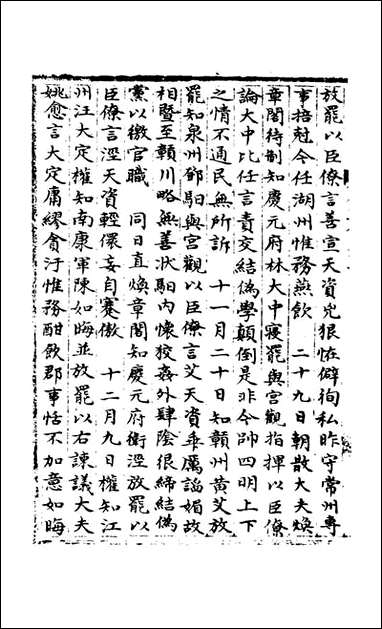 放罷以臣僚言善宣天資兇狠怪僻徇私昨守常州專
事掊尅今任湖州惟務燕飲　二十九日朝散大夫煥
章閣待制知慶元府林大中寢罷與宮觀指揮以臣僚
論大中比任言責交結偽學顛倒是非今帥四明上下
之情不通民無所訴　十一月二十日知贛州黄艾放
罷知泉州鄧馹與宮觀以臣僚言艾天資乖厲謟媚故
相暨至贛川略無善狀馹内懷狡姦外肆陰很締結偽
黨以徼官職　同日直煥章閣知慶元府衛涇放罷以
臣僚言涇天資輕儇妄自蹇傲　十二月九日權知江
州汪大定權知南康軍陳如晦並放罷以右諫議大夫
姚愈言大定庸繆貪汙惟務酣飲郡事恬不加意如晦